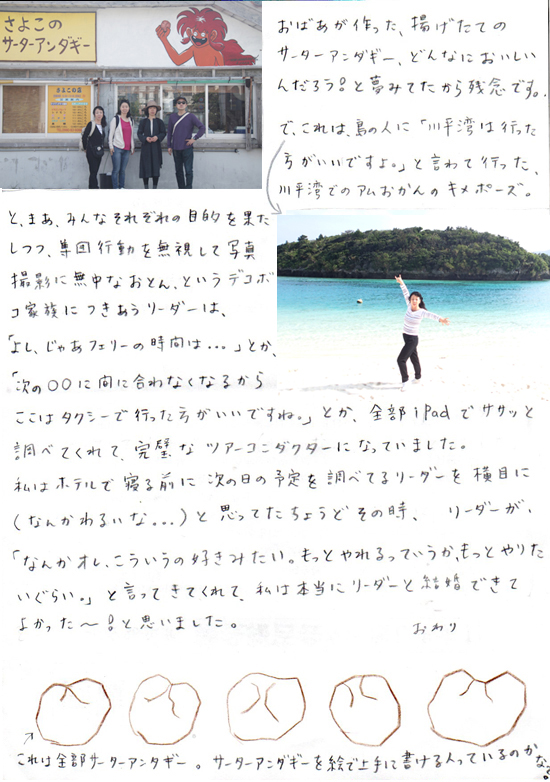 さよこの
サーターアンダギー
さよこの店
おばあが作った、揚げたての
サーターアンダギー、どんなにおいしい
んだろう?と夢みてたから残念です。
で、これは、島の人に「川平湾は行った
方がいいですよ。」と言われて行った、
川平湾でのアムおかんのキメポーズ。
と、まあ、みんなそれぞれの目的を果た
しつつ、集団行動を無視して写真
撮影に無中なおとん、というデコボ
コ家族につきあうリーダーは、
「よし、じゃあフェリーの時間は...」とか、
「次の○○に間に合わなくなるから
ここはタクシーで行った方がいいですね。」とか、全部iPadでササッと
調べてくれて、完璧なツアーコンダクターになっていました。
私はホテルで寝る前に次の日の予定を調べてるリーダーを横目に
(なんかわるいな...)と思ってたちょうどその時、リーダーが、
「なんかオレ、こういうの好きみたい。もっとやれるっていうか、もっとやりた
いぐらい。」と言ってきてくれて、私は本当にリーダーと結婚できて
よかった〜!と思いました。
おわり
これは全部サーターアンダギー。サーターアンダギーを絵で上手に書ける人っているのかな?